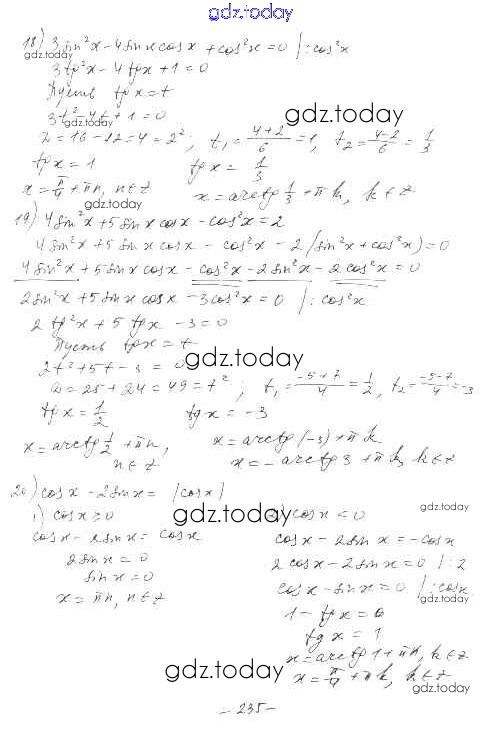 gdz.today
18) 3sin²x-4sinxcosx+cos²x=0 |:cos²x
gdz.today
3tg²x-4tgx+1=0
Пусть tgx=t
3t²-4t+1=0
gdz.today
gdz.today
D=16-12=4=2²; t₁=(4+2)/6=1, t₂=(4-2)/6=1/3
tgx=1 tgx=1/3
x=π/4+πn, n∈Z x=arctg 1/3+πk, k∈Z
gdz.today
19) 4sin²x+5sinxcosx-cos²x=2
4sin²x+5sinxcosx-cos²x-2(sin²x+cos²x)=0
4sin²x+5sinxcosx-cos²x-2sin²x-2cos²x=0
2sin²x+5sinxcosx-3cos²x=0 |:cos²x
2tg²x+5tgx-3=0
Пусть tgx=t
gdz.today
2t²+5t-3=0
D=25+24=49=7²; t₁=(-5+7)/4=1/2, t₂=(-5-7)/4=-3
tgx=1/2 tgx=-3
x=arctg 1/2+πn, n∈Z x=arctg(-3)+πk
x=-arctg3+πk, k∈Z
20) cosx-2sinx=|cosx|
gdz.today
gdz.today
1) cosx≥0 2) cosx<0
cosx-2sinx=cosx cosx-2sinx=-cosx
2sinx=0 2cosx-2sinx=0 |:2
sinx=0 cosx-sinx=0 |:cosx
gdz.today
x=πn, n∈Z 1-tgx=0
tgx=1
x=arctg1+πk, k∈Z
gdz.today
x=π/4+πk, k∈Z
gdz.today
-235-